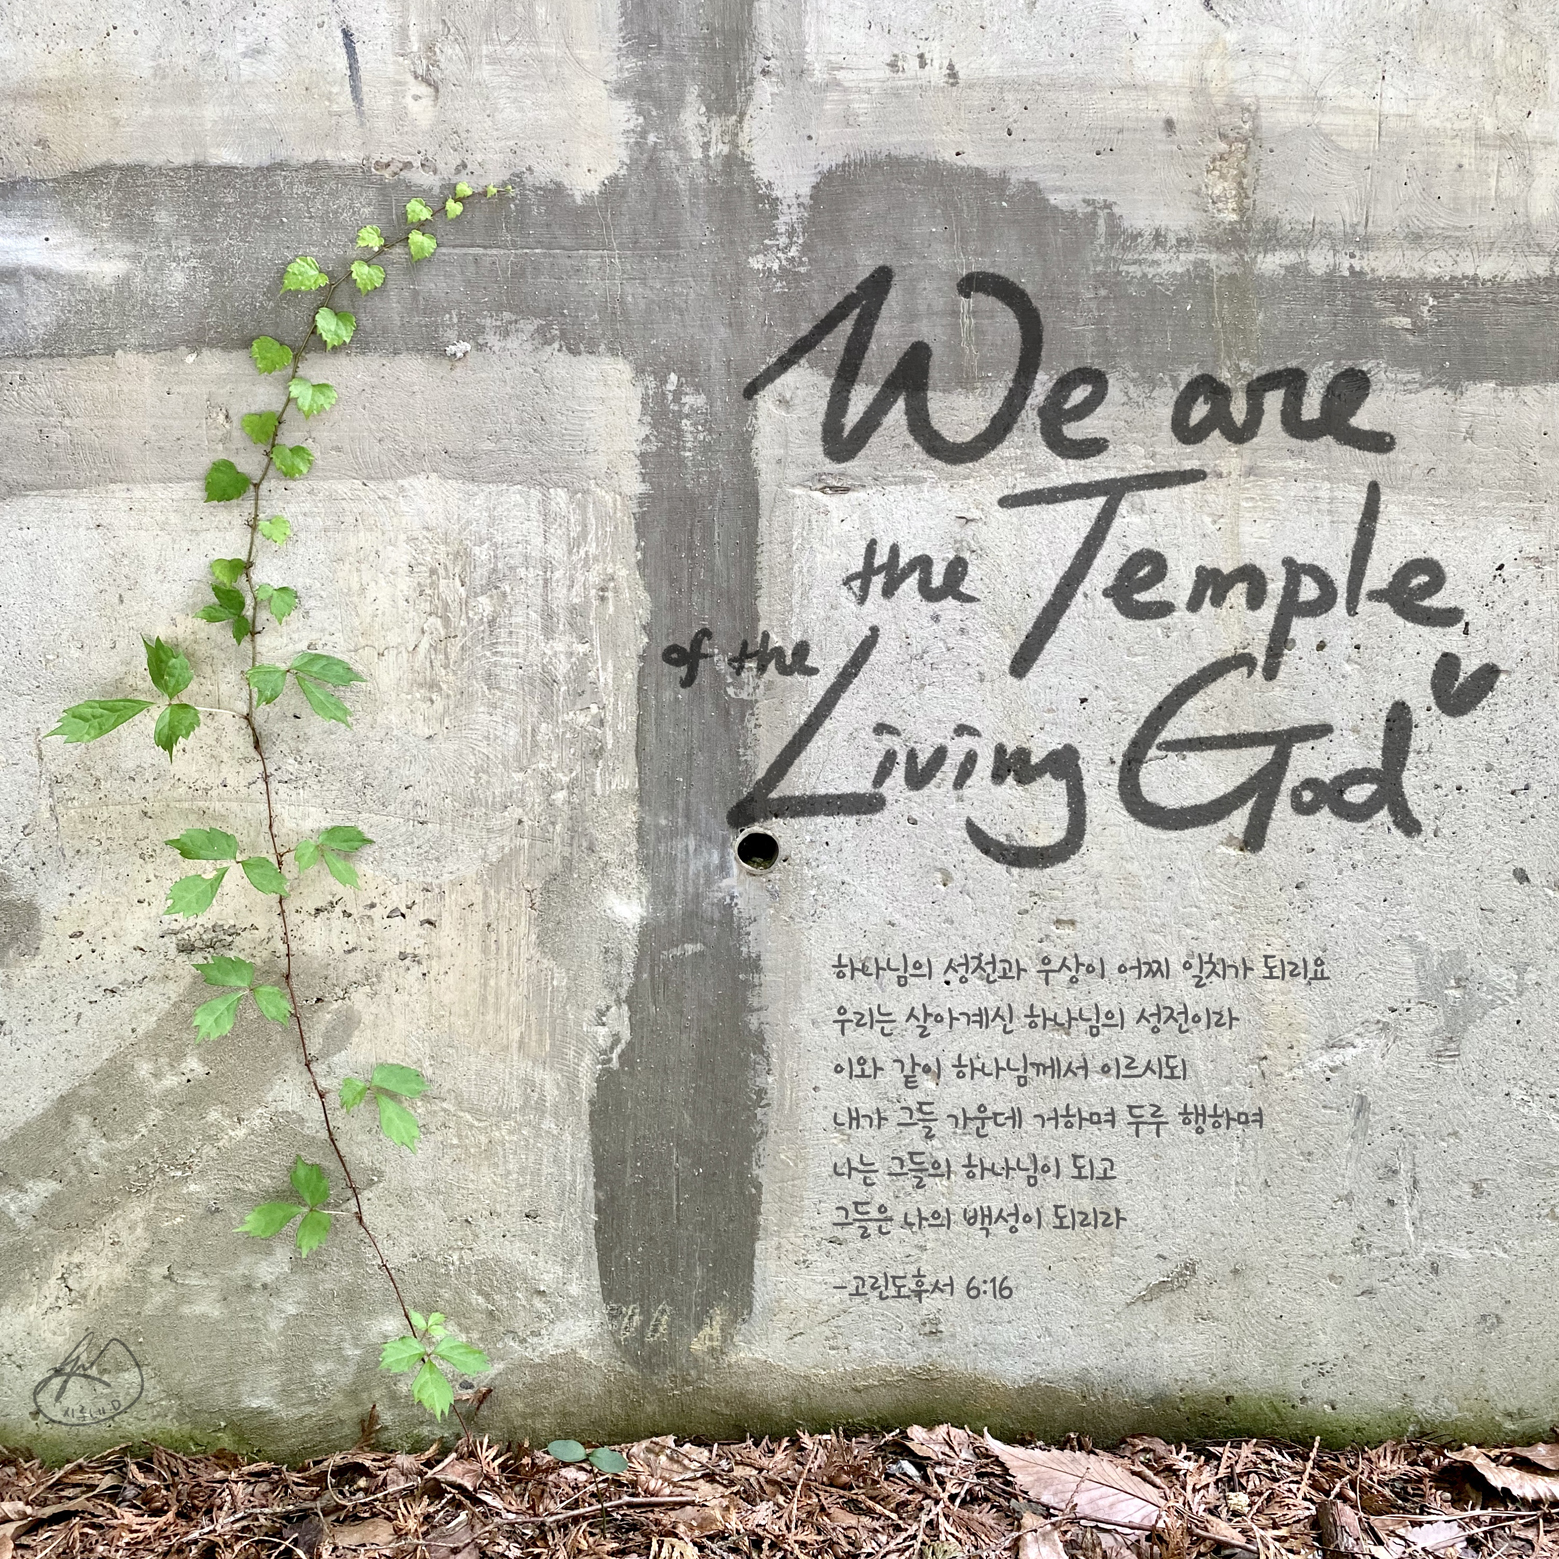 We are
the Temple
of the
Living God
하나님의 성전과 우상이 어찌 일치가 되리요
우리는 살아계신 하나님의 성전이라
이와 같이 하나님께서 이르시되
내가 그들 가운데 거하며 두루 행하며
나는 그들의 하나님이 되고
그들은 나의 백성이 되리라
-고린도후서 6:16